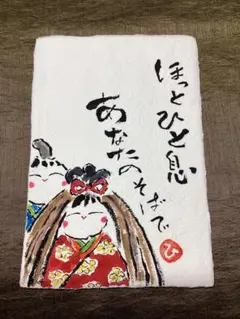 ほっとひと息
あなたの
そばで
ひ